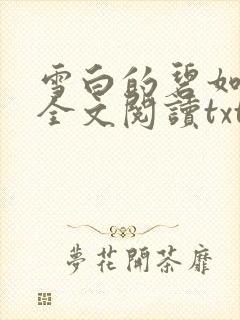 雪白的碧如
全文閱讀txt
夢花開荼靡